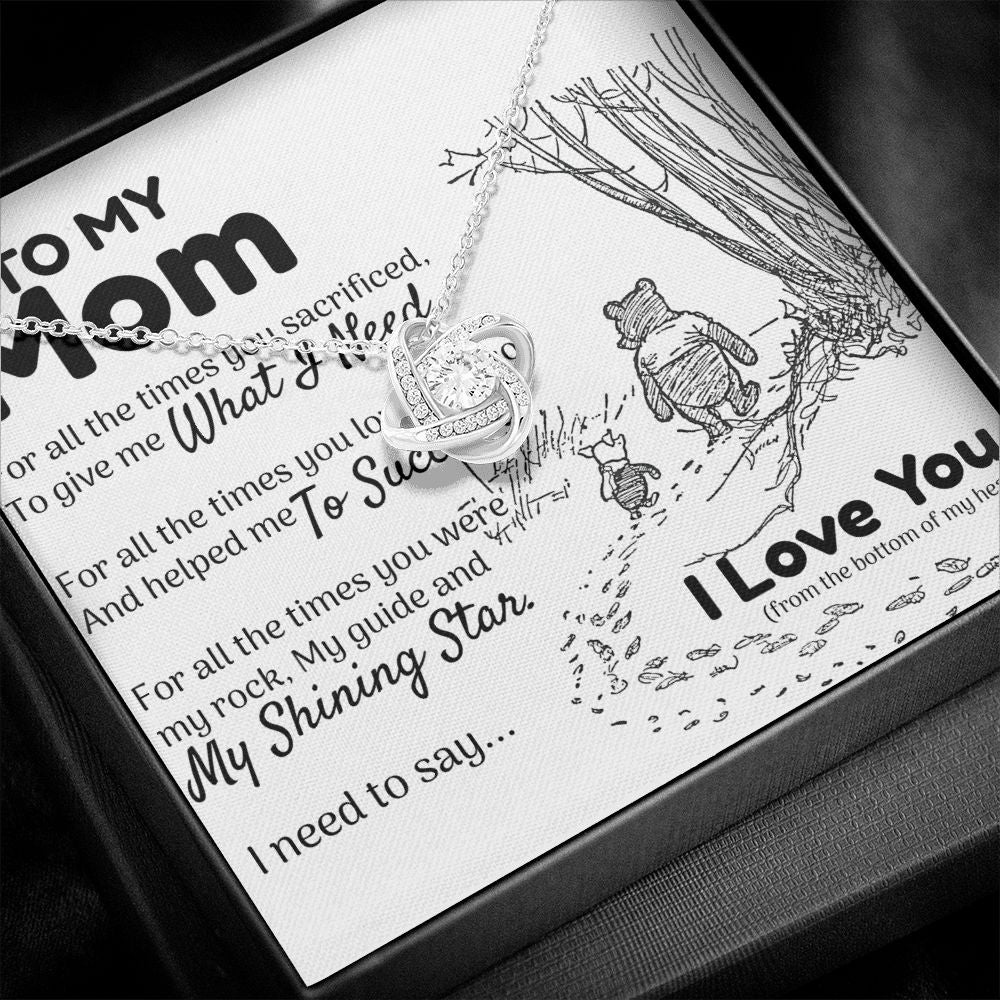 TO MY
Mom
or all the times you sacrificed,
To give me What I Need
For all the times you lo
And helped me To Succ
For all the times you were
my rock, My guide and
My Shining Star.
I need to say...
I Love You
(from the bottom of my hea